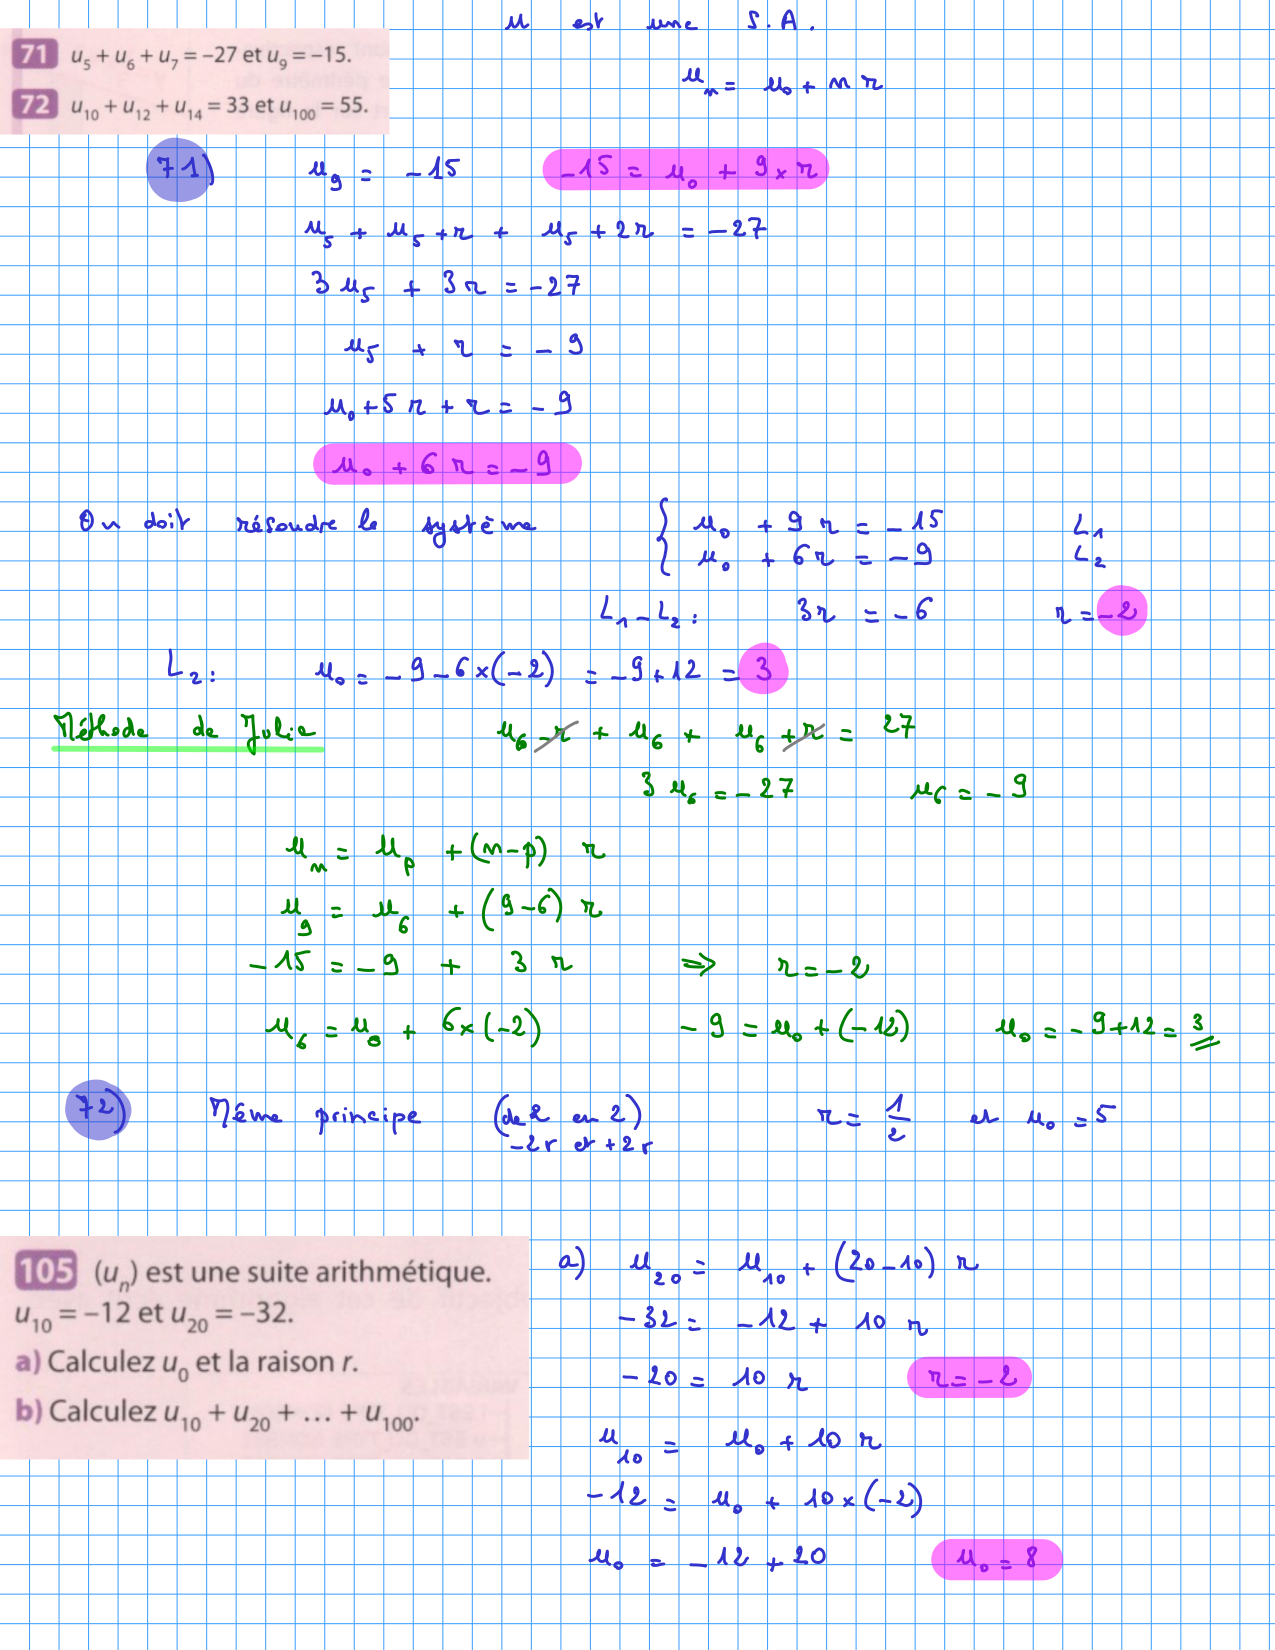 u est une S.A.
71 u5 + u6 + u7 = –27 et u9 = –15.
un = u0 + n r
72 u10 + u12 + u14 = 33 et u100 = 55.
71) u9 = -15 -15 = u0 + 9 × r
u5 + u5 + r + u5 + 2r = -27
3 u5 + 3 r = -27
u5 + r = - 9
u0 + 5 r + r = - 9
u0 + 6 r = - 9
On doit résoudre le système { u0 + 9 r = - 15 L1
u0 + 6 r = - 9 L2
L1 - L2 : 3r = - 6 r = -2
L2 : u0 = - 9 - 6 × (-2) = -9 + 12 = 3
Méthode de Julie u6 - r + u6 + u6 + r = 27
3 u6 = - 27 u6 = - 9
un = up + (n-p) r
u9 = u6 + (9-6) r
- 15 = - 9 + 3 r => r = - 2
u6 = u0 + 6 × (-2) - 9 = u0 + (-12) u0 = - 9 + 12 = 3
72) Même principe (de 2 en 2) r = 1/2 et u0 = 5
-2r et +2r
105 (un) est une suite arithmétique.
u10 = –12 et u20 = –32.
a) Calculez u0 et la raison r.
b) Calculez u10 + u20 + … + u100.
a) u20 = u10 + (20-10) r
- 32 = - 12 + 10 r
- 20 = 10 r r = - 2
u10 = u0 + 10 r
- 12 = u0 + 10 × (-2)
u0 = - 12 + 20 u0 = 8